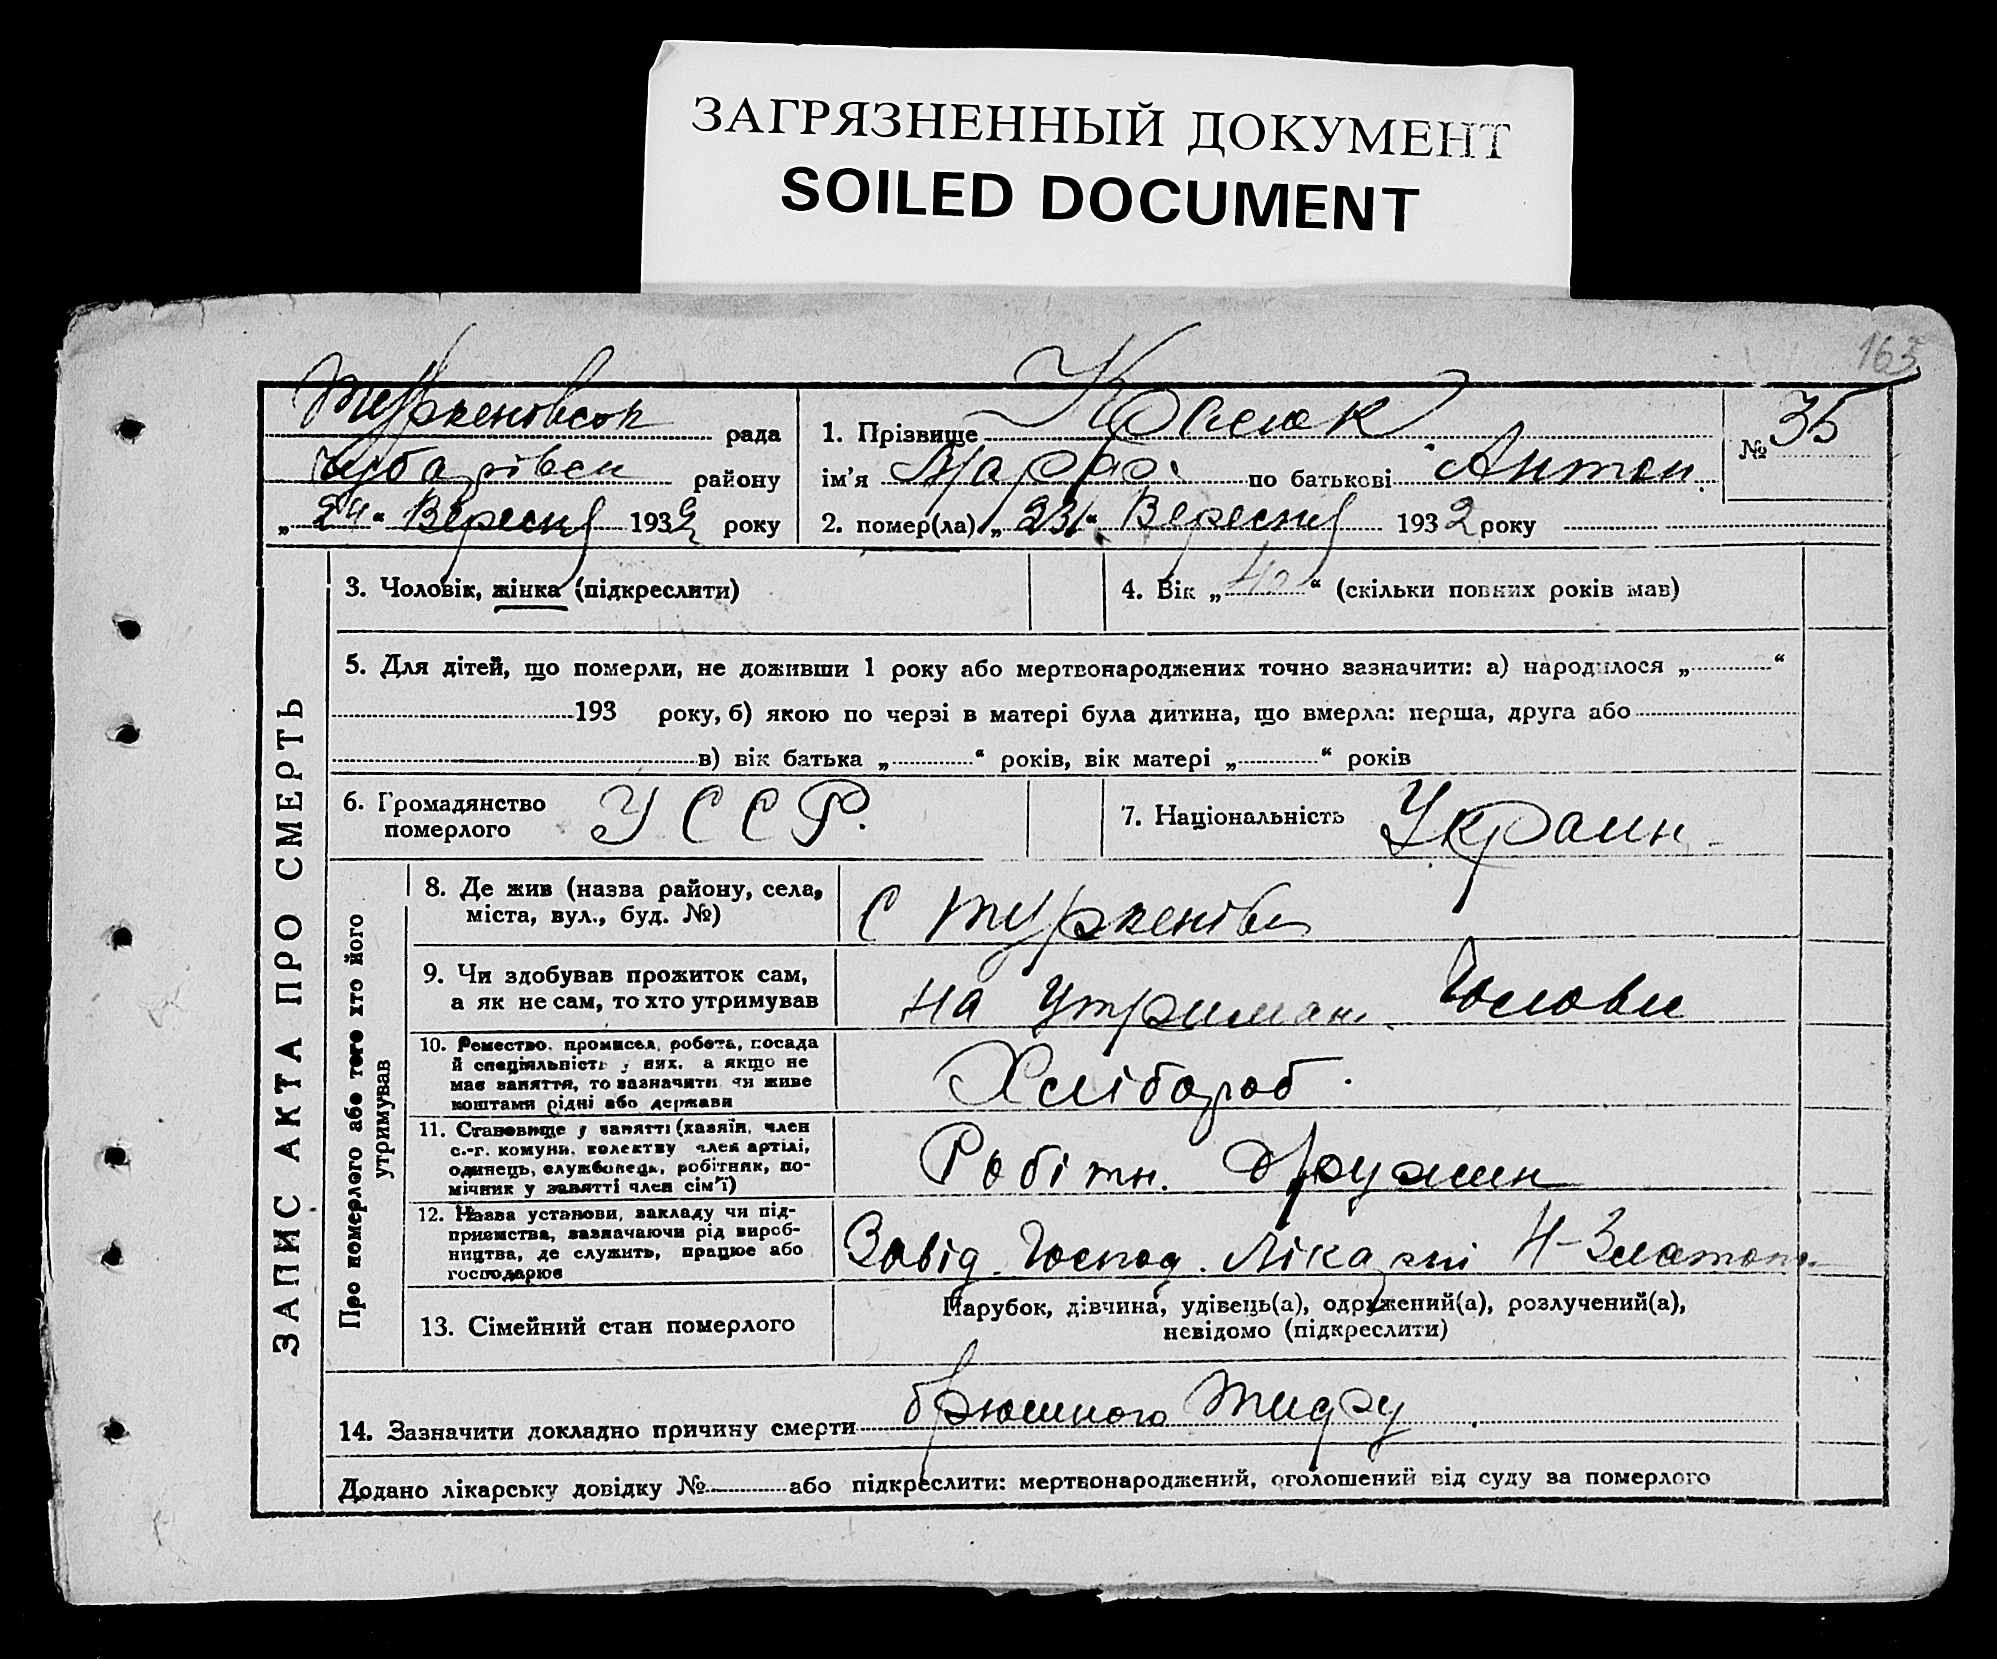 ЗАГРЯЗНЕННЫЙ ДОКУМЕНТ
SOILED DOCUMENT
163
Туркенівськ рада
Чубарівськ району
„24“ Вересня 1932 року
1. Прізвище
ім'я по батькові Антон.
2. помер(ла) „23“ Вересня 1932 року
№ 35
ЗАПИС АКТА ПРО СМЕРТЬ
3. Чоловік, жінка (підкреслити)
4. Вік „ “ (скільки повних років мав)
5. Для дітей, що померли, не доживши 1 року або мертвонароджених точно зазначити: а) народилося „ “
193 року, б) якою по черзі в матері була дитина, що вмерла: перша, друга або
в) вік батька „ “ років, вік матері „ “ років
6. Громадянство
померлого
УССР.
7. Національність Украин.
Про померлого або того хто його
утримував
8. Де жив (назва району, села,
міста, вул., буд. №)
С Туркенівк
9. Чи здобував прожиток сам,
а як не сам, то хто утримував
на утриман.
10. Ремество, промисел, робота, посада
й спеціяльність у них, а якщо не
має заняття, то зазначити чи живе
коштами рідні або держави
Хлібороб.
11. Становище у занятті (хазяїн, член
с.-г. комуни, колективу член артілі,
одинець, службовець, робітник, по-
мічник у занятті член сім'ї)
Робітн. дружин
12. Назва установи, закладу чи під-
приємства, зазначаючи рід вироб-
ництва, де служить, працює або
господарює
Завід. Господ. Лікарні Н-Златоп.
13. Сімейний стан померлого
Парубок, дівчина, удівець(а), одружений(а), розлучений(а),
невідомо (підкреслити)
14. Зазначити докладно причину смерти брюшного тифу
Додано лікарську довідку № або підкреслити: мертвонароджений, оголошений від суду за померлого